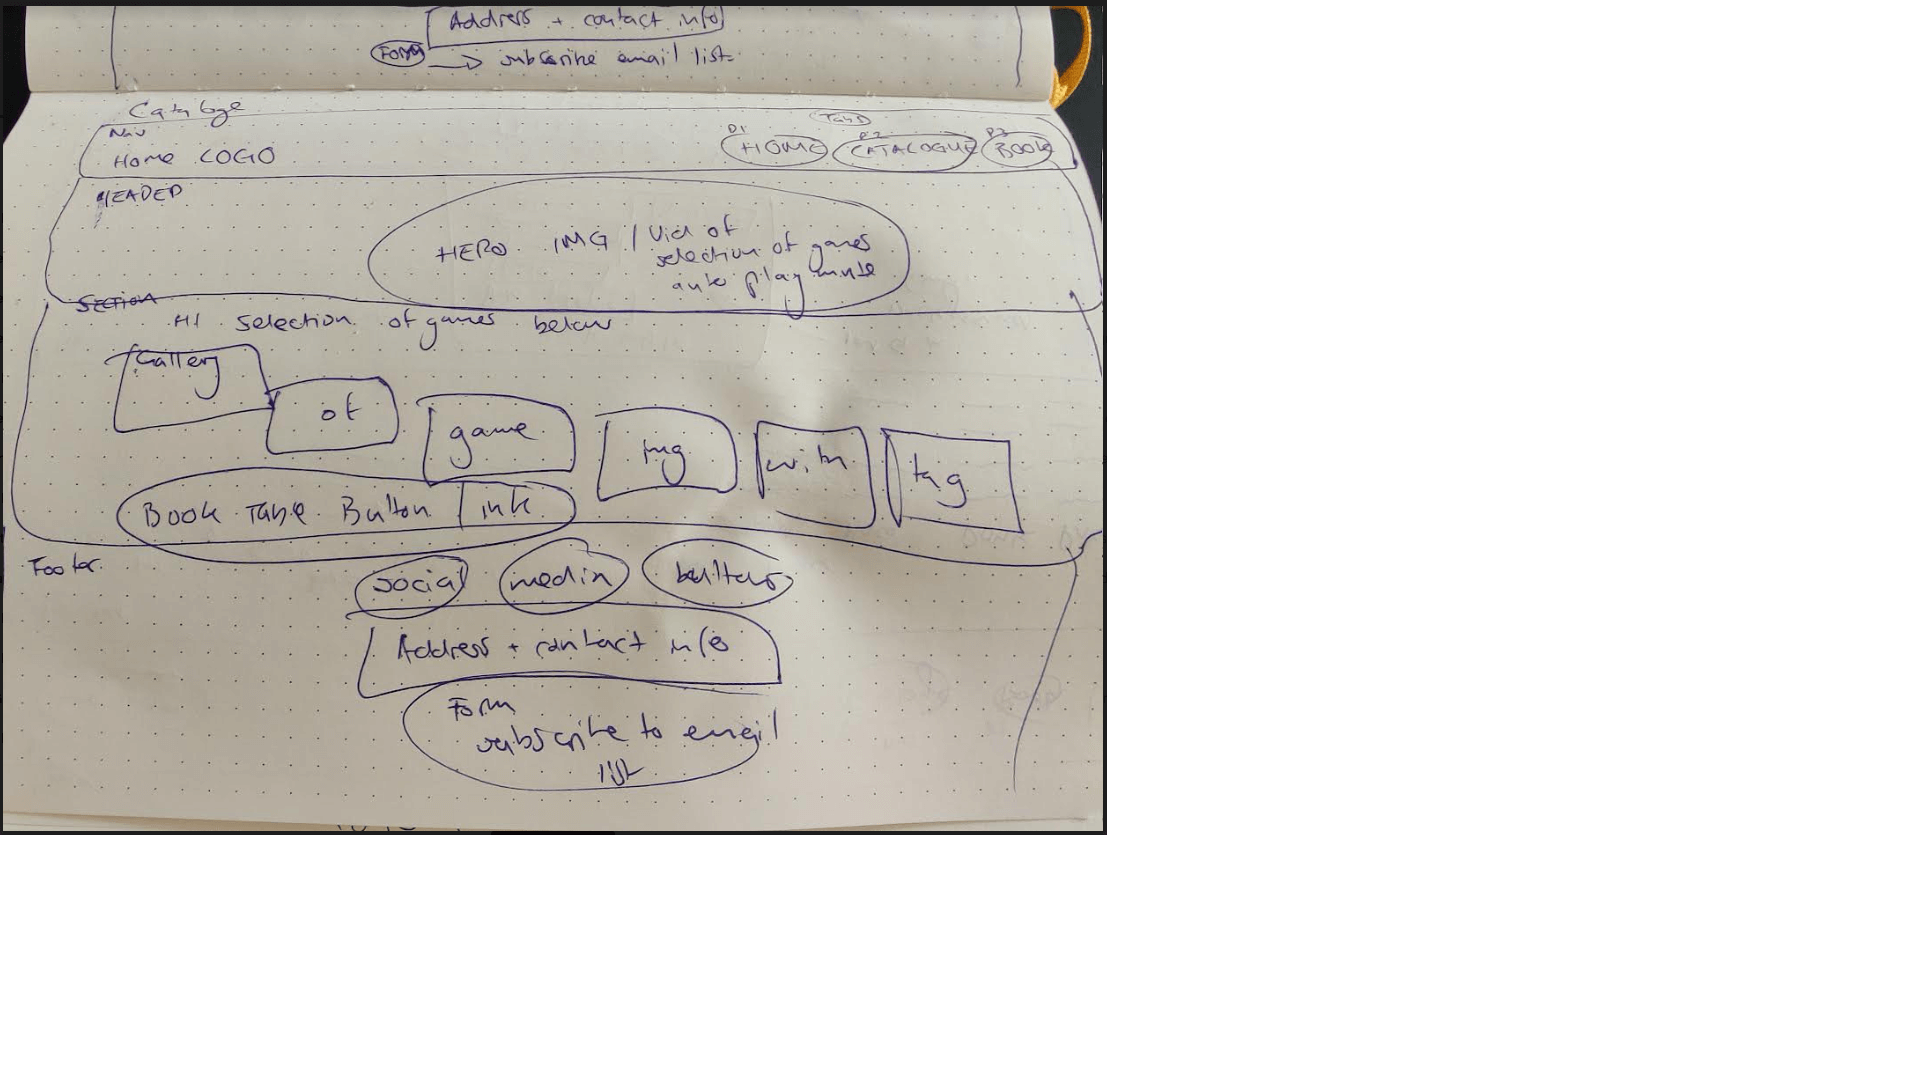 Address + contact info
Form → subscribe email list
Catalogue
Nav
Tabs
Home LOGO
P1 HOME
P2 CATALOGUE
P3 BOOK
HEADER
HERO IMG / Vid of
selection of games
auto play mute
SECTION
H1 selection of games below
Gallery of game img with tag
Book Table Button / ink
Footer
social media buttons
Address + contact info
Form
subscribe to email
list